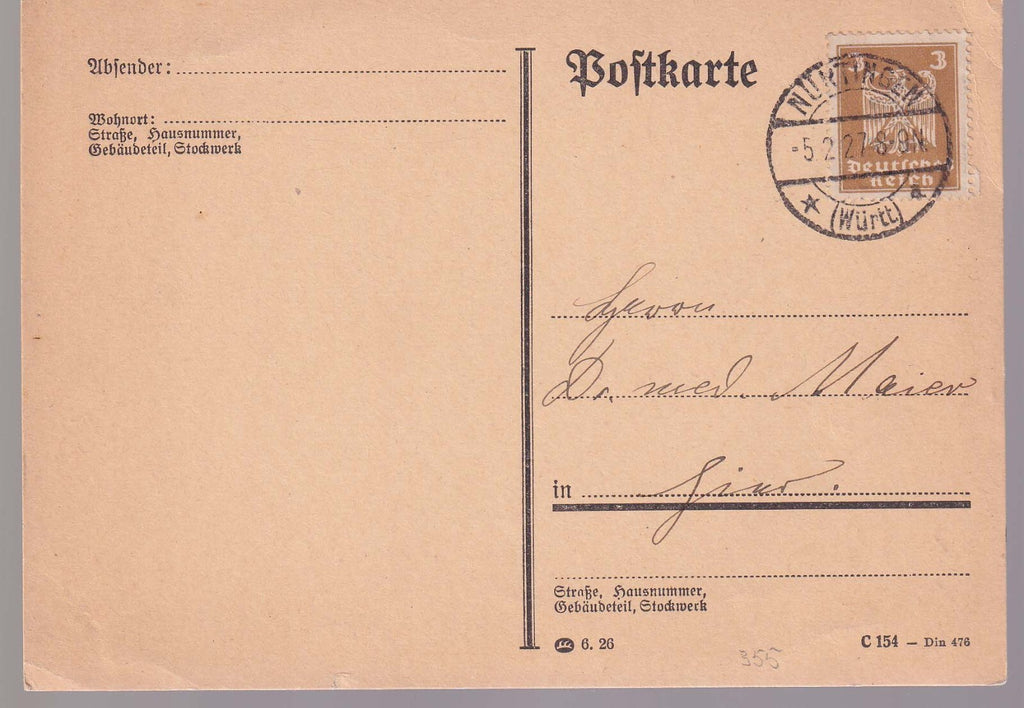 Absender:
Wohnort:
Straße, Hausnummer,
Gebäudeteil, Stockwerk
Postkarte
3
Deutsches
Reich
NÜRTINGEN
-5.2.27.8-9N
* (Württ) a
Herrn
Dr. med. Maier
in hier.
Straße, Hausnummer,
Gebäudeteil, Stockwerk
6. 26
C 154 – Din 476
355